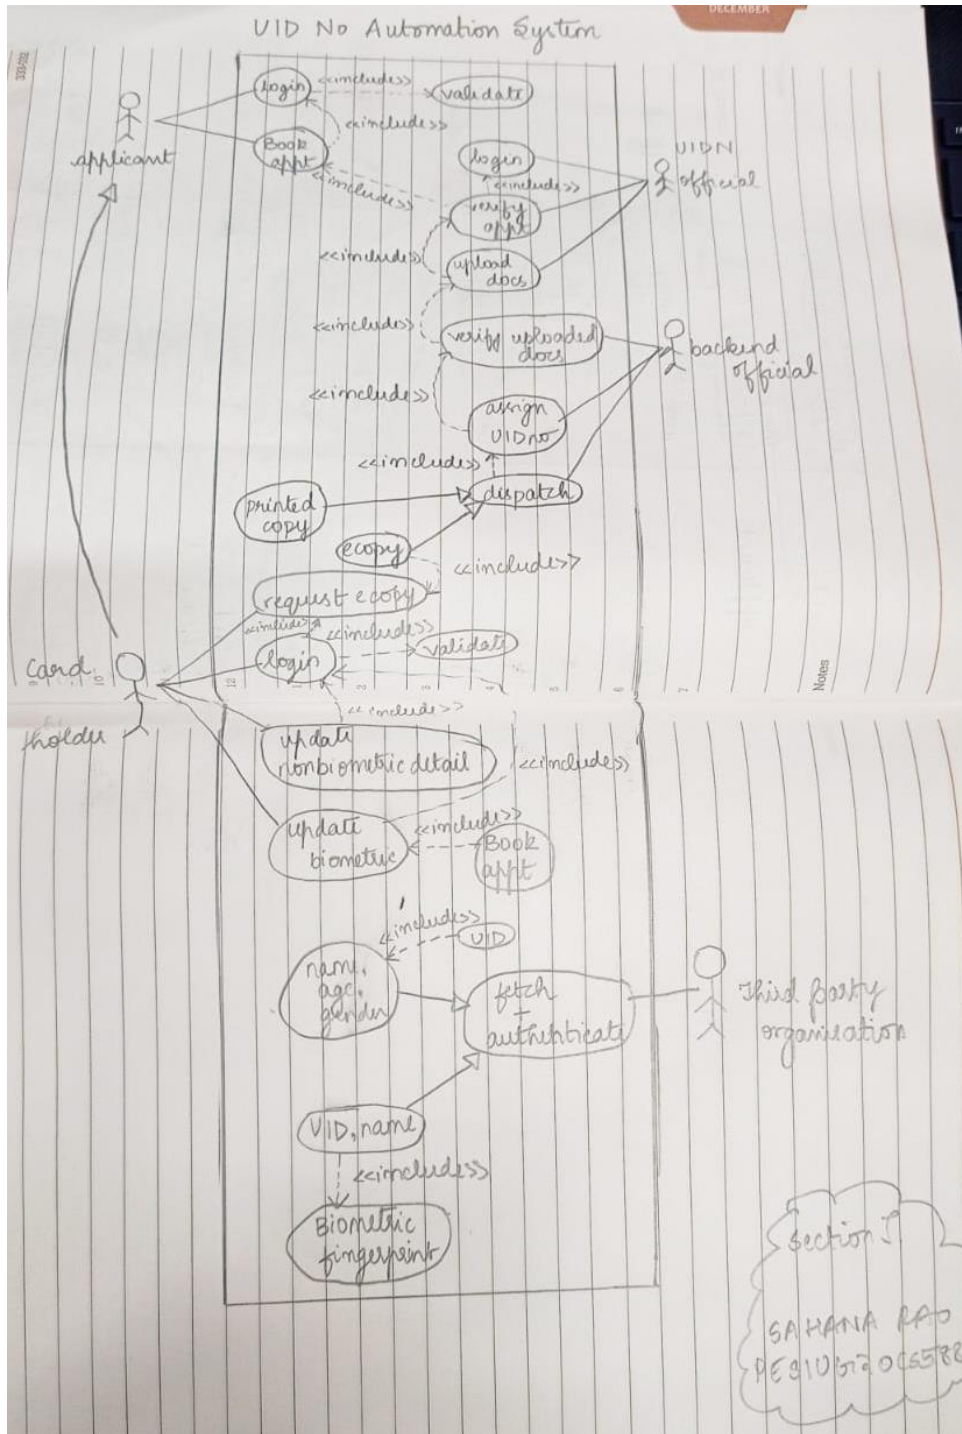 DECEMBER
UID No Automation System
333-032
login
<<includes>>
validate
applicant
Book
appt
<<includes>>
login
UIDN
official
<<includes>>
<<includes>>
verify
appt
<<includes>>
upload
docs
<<includes>>
verify uploaded
docs
backend
official
<<includes>>
assign
UIDno
<<includes>>
dispatch
printed
copy
ecopy
<<includes>>
request ecopy
<<includes>>
<<includes>>
login
validate
Card
Holder
9
10
12
11
2
3
4
5
6
7
Notes
<<includes>>
update
nonbiometric detail
<<includes>>
update
biometric
<<includes>>
Book
appt
<<includes>>
UID
name,
age,
gender
fetch
+
authenticate
Third party
organisation
UID, name
<<includes>>
Biometric
fingerprint
Section J
SAHANA RAO